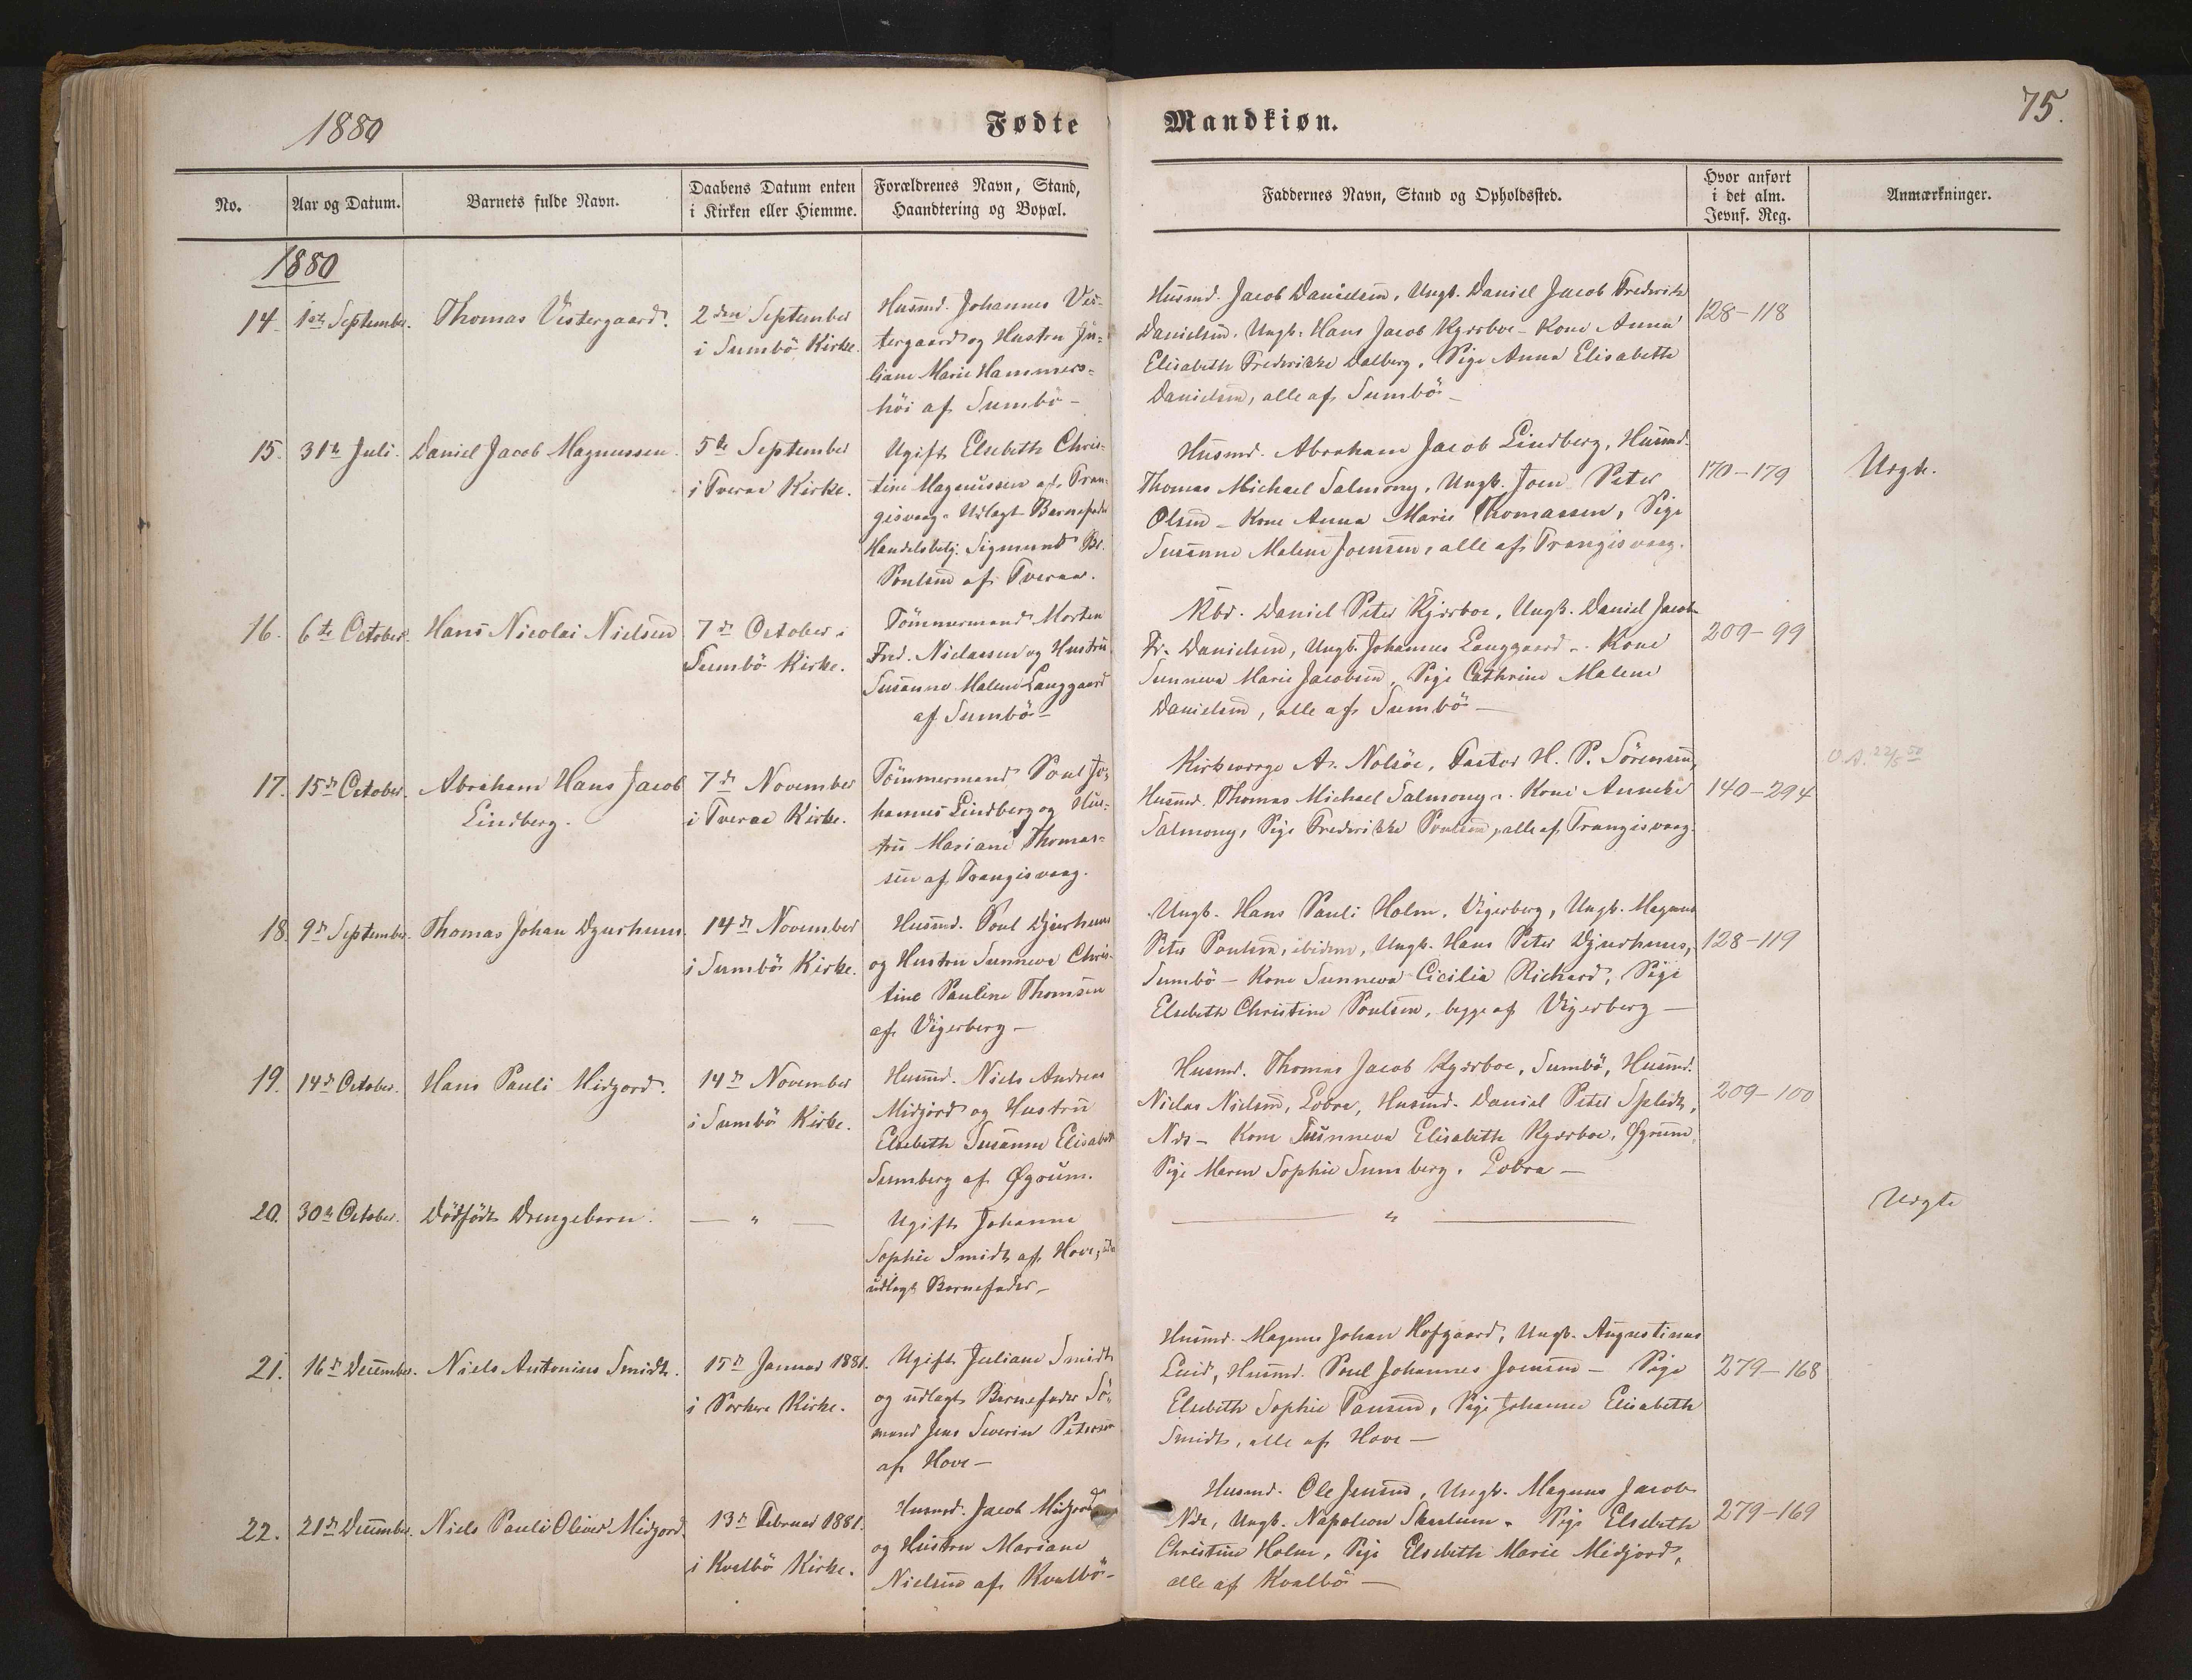 1880
Fødte
Mandkiøn.
75.
No.
Aar og Datum.
Barnets fulde Navn.
Daabens Datum enten
i Kirken eller Hiemme.
Forældrenes Navn, Stand,
Haandtering og Bopæl.
Faddernes Navn, Stand og Opholdssted.
Hvor anført
i det alm.
Jevnf. Reg.
Anmærkninger.
1880
14. 1ste September. Thomas Vestergaard.
2den September
i Sumbö Kirke.
Husmd. Johannes Ves-
tergaard og Hustru Ju-
liane Marie Hammers-
höi af Sumbö -
Husmd. Jacob Danielsen, Ungk. Daniel Jacob Frederik
Danielsen. Ungk. Hans Jacob Kjærboe - Kone Anna
Elisabeth Frederikke Dalberg. Pige Anna Elisabeth
Danielsen, alle af Sumbö -
128-118
15. 31te Juli. Daniel Jacob Magnussen.
5te September
i Tveraa Kirke.
Ugift Elsebeth Chris-
tine Magnussen af Tran-
gisvaag. Udlagt Barnefader
Handelsbetj. Sigmund
Poulsen af Tveraa.
Husmd. Abraham Jacob Lindberg, Husmd.
Thomas Michael Salmony, Ungk. Joen Peter
Olsen - Kone Anna Marie Thomassen, Pige
Susanne Malene Joensen, alle af Trangisvaag.
170-179
Uegte.
16. 6te October. Hans Nicolai Nielsen
7de October i
Sumbö Kirke.
Tömmermand Morten
Fred. Niclassen og Hustru
Susanne Malene Langgaard
af Sumbö -
Kbd. Daniel Peter Kjærboe, Ungk. Daniel Jacob
Fr. Danielsen, Ungk. Johannes Langgaard - Kone
Sunneva Marie Jacobsen, Pige Cathrine Malene
Danielsen, alle af Sumbö -
209-99
17. 15de October. Abraham Hans Jacob
Lindberg.
7de November
i Tveraa Kirke.
Tömmermand Poul Jo-
hannes Lindberg og Hus-
tru Mariane Thomas-
sen af Trangisvaag.
Kirkeværge A. Nolsöe, Factor H. P. Sörensen,
Husmd. Thomas Michael Salmony. Kone Anneke
Salmony, Pige Frederikke Poulsen, alle af Trangisvaag.
140-294
18. 9de September. Thomas Johan Djurhuus.
14de November
i Sumbö Kirke.
Husmd. Poul Djurhuus
og Hustru Sunneva Chris-
tine Pauline Thomsen
af Vigerberg -
Ungk. Hans Pauli Holm, Vigerberg, Ungk. Magnus
Peter Poulsen, ibidem, Ungk. Hans Peter Djurhuus,
Sumbö - Kone Sunneva Cicilia Richard, Pige
Elsebeth Christine Poulsen, begge af Vigerberg -
128-119
19. 14de October. Hans Pauli Midjord.
14de November
i Sumbö Kirke.
Husmd. Niels Andreas
Midjord og Hustru
Elsebeth Susanne Elisabeth
Sumberg af Øgrum.
Husmd. Thomas Jacob Kjærboe, Sumbö, Husmd.
Niclas Nielsen, Lobra, Husmd. Daniel Peter Splidt,
Nds - Kone Sunneva Elisabeth Kjærboe, Øgrum,
Pige Maren Sophie Sumberg, Lobra -
209-100
20. 30te October. Dödfödt Drengebarn.
— " —
Ugift Johanne
Sophie Smidt af Hove,
udlagt Barnefader -
— " —
Uegte
21. 16de December. Niels Antonius Smidt.
15de Januar 1881.
i Porkere Kirke.
Ugift Juliane Smidt
og udlagt Barnefader Sö-
mand Jens Severin Petersen
af Hove -
Husmd. Magnus Johan Hofgaard, Ungk. Augustinus
Luid, Husmd. Poul Johannes Joensen - Pige
Elsebeth Sophie Tausen, Pige Johanne Elisabeth
Smidt, alle af Hove -
279-168
22. 21de December. Niels Pauli Oliver Midjord.
13de Februar 1881.
i Kvalbö Kirke.
Husmd. Jacob Midjord
og Hustru Mariane
Nielsen af Kvalbö -
Husmd. Ole Jensen, Ungk. Magnus Jacob
Nds, Ungk. Napoleon Skaalum - Pige Elsebeth
Christine Holm, Pige Elsebeth Marie Midjord,
alle af Kvalbö -
279-169